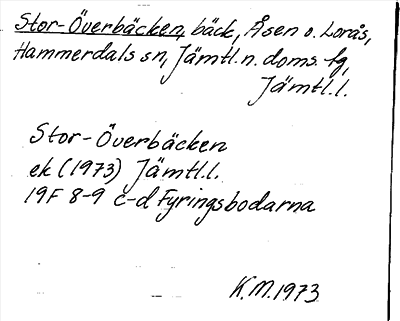 Stor-Överbäcken, bäck, Åsen o. Lorås,
Hammerdals sn, Jämtl. n. doms. fg,
Jämtl.l.
Stor-Överbäcken
ek (1973) Jämtl.l.
19F 8-9 c-d Fyringsbodarna
K.M. 1973